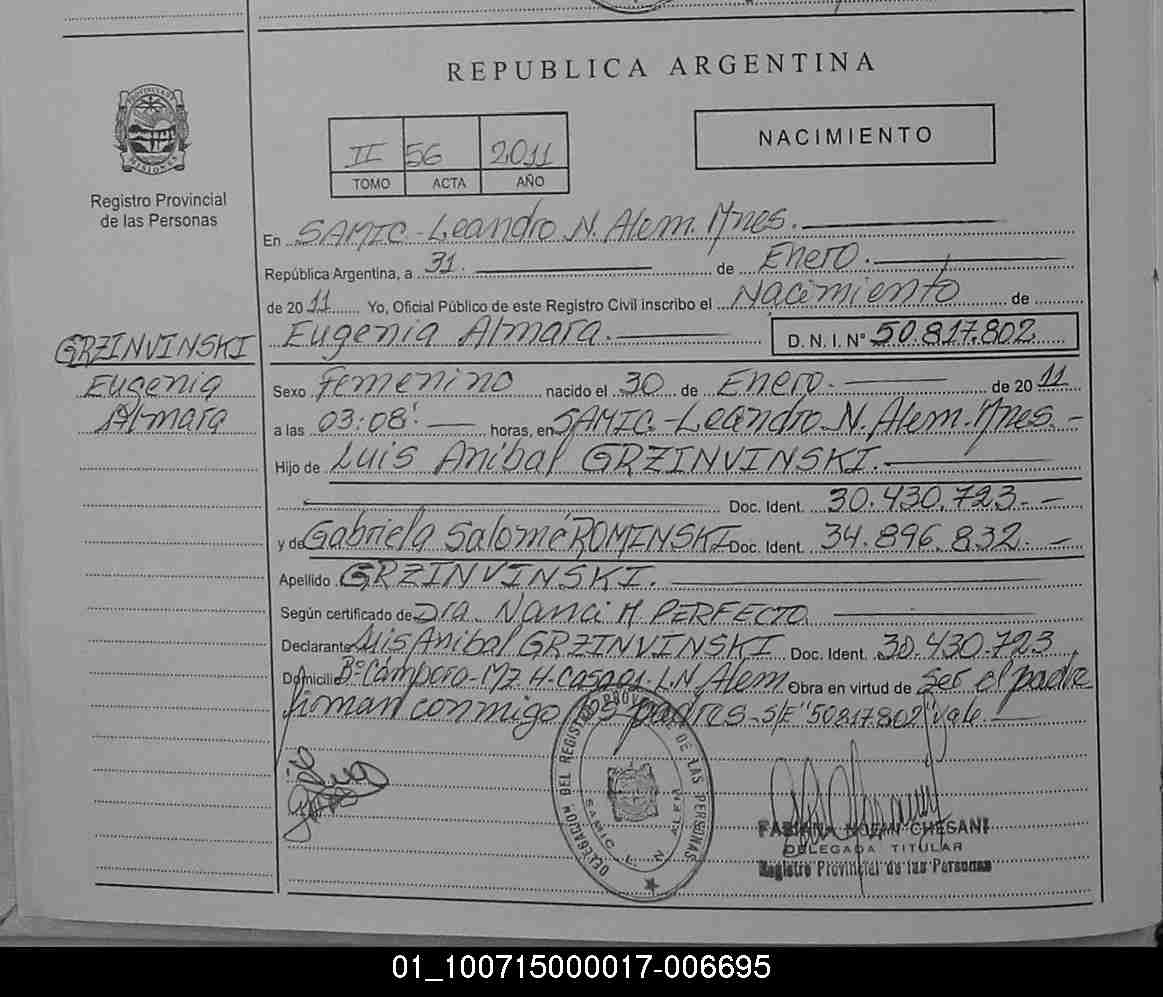 REPUBLICA ARGENTINA
PROVINCIA DE MISIONES
Registro Provincial
de las Personas
II 56 2011
TOMO ACTA AÑO
NACIMIENTO
En SAMIC-Leandro N. Alem. Mnes.
República Argentina, a 31. de Enero.
de 2011 Yo, Oficial Público de este Registro Civil inscribo el Nacimiento de
Eugenia Almara. D. N. I. N° 50.817.802
GRZINVINSKI
Eugenia
Almara
Sexo Femenino nacido el 30 de Enero. de 2011
a las 03:08' horas, en SAMIC-Leandro N. Alem. Mnes.
Hijo de Luis Anibal GRZINVINSKI.
Doc. Ident. 30.430.723.
y de Gabriela Salomé ROMINSKI Doc. Ident. 34.896.832.
Apellido GRZINVINSKI.
Según certificado de Dra. Nanci M PERFECTO
Declarante Luis Anibal GRZINVINSKI Doc. Ident. 30.430.723
Domicilio Bº Cámpora-Mz.H-Casa01-L.N.Alem Obra en virtud de ser el padre
firman conmigo los padres-S/E"50817802"Vale
DELEGACION DEL REGISTRO PROV. DE LAS PERSONAS
SAMIC L. N. ALEM
FABIANA NOEMI CHESANI
DELEGADA TITULAR
Registro Provincial de las Personas
01_100715000017-006695